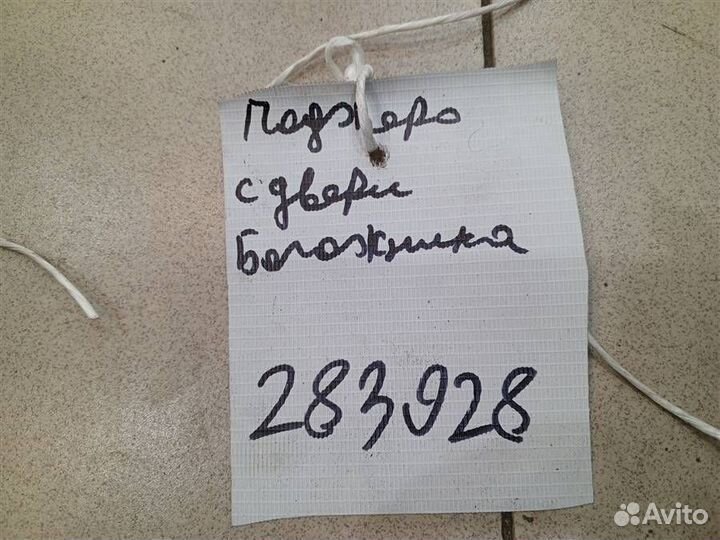 Паджеро
с двери
Богожника
283928
Avito